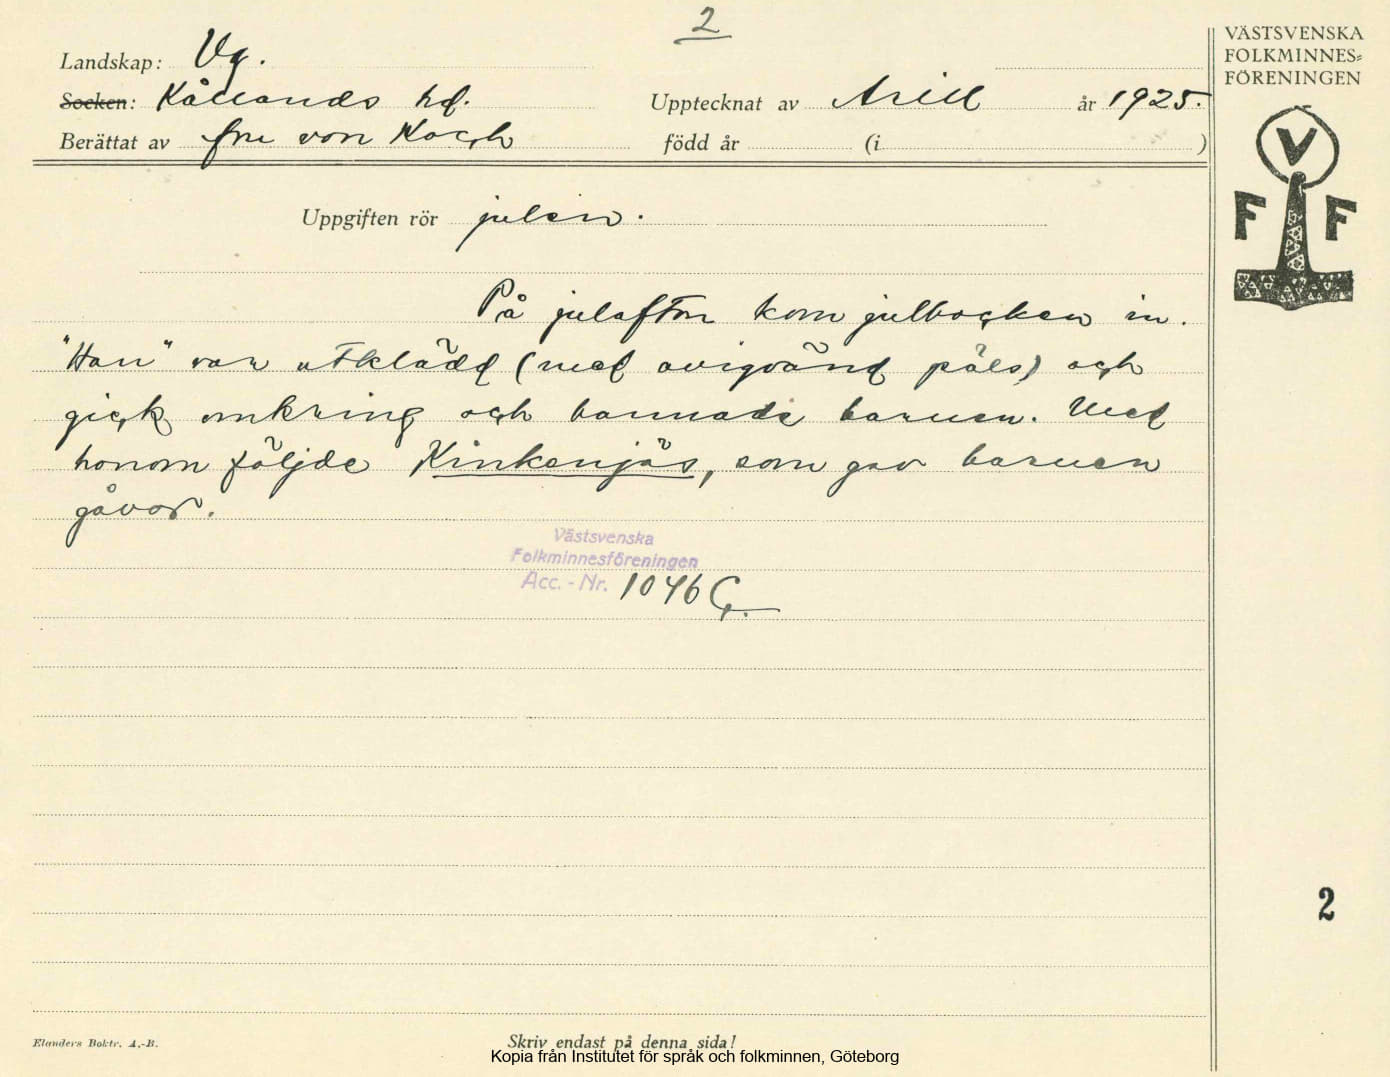 2
VÄSTSVENSKA
FOLKMINNES=
FÖRENINGEN
V
F F
Landskap: Vg.
Socken: Kållands hd.
Upptecknat av Arill år 1925.
Berättat av fru von Koch född år (i )
Uppgiften rör julen.
På julafton kom julbocken in.
"Han" var utklädd (med avigvänd päls) och
gick omkring och bannade barnen. Med
honom följde Kinkenjäs, som gav barnen
gåvor.
Västsvenska
Folkminnesföreningen
Acc. - Nr. 1046 C.
2
Elanders Boktr. A.-B.
Skriv endast på denna sida!
Kopia från Institutet för språk och folkminnen, Göteborg